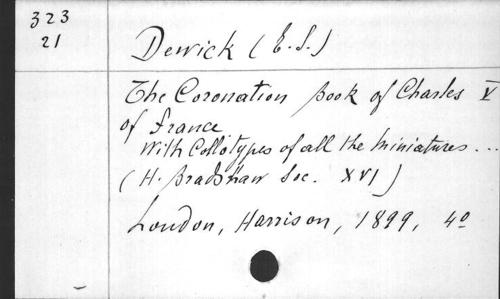 323
21
Dewick (E. S.)
The Coronation Book of Charles V
of France
With Collotypes of all the Miniatures...
(H. Bradshaw Soc. XVI)
London, Harrison, 1899, 4º